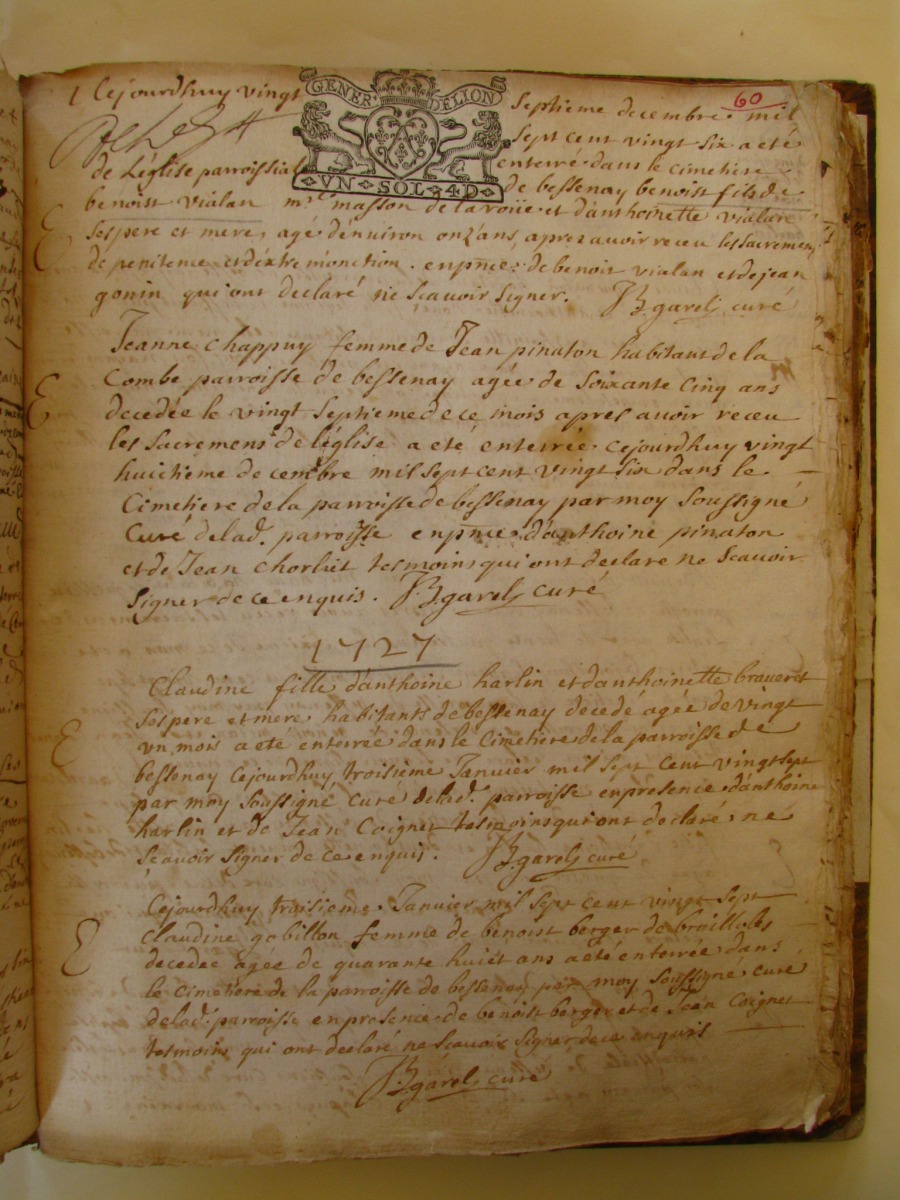 60
GENER. DE LION
VN SOL 4D
1 Cejourdhuy vingt Septieme decembre mil
Sept cent vingt Six a eté
enterré dans le cimetiere
de L'église parroissiale de bessenay benoist fils de
benoist vialan mr masson de la roüe et d'anthoinette vialare
Ses pere et mere, agé denuiron onz'ans, apres auoir receu les Sacremens
de penitence et d'extremonction. en pñce de benoit vialan et de jean
gonin qui ont declaré ne Scauoir Signer. garel curé
Jeanne chappuy femme de Jean pinaton habitant de la
Combe parroisse de bessenay agée de Soixante Cinq ans
decedée le vingt Septieme de ce mois apres auoir receu
les Sacremens de l'église a eté enterrée cejourdhuy vingt
huitieme decembre mil Sept cent vingt Six dans le
Cimetiere de la parroisse de bessenay par moy Soussigné
Curé de lad. parroisse en pñce d'anthoine pinaton
et de Jean chorliet tesmoins qui ont declare ne Scauoir
Signer de ce enquis. garel curé
1727
Claudine fille d'anthoine harlin et d'anthoinette braueret
Ses pere et mere habitants de bessenay decedé agée de vingt
vn mois a eté enterrée dans le Cimetiere de la parroisse de
bessenay Cejourdhuy troisieme Januier mil Sept Cent vingt Sept
par moy Soussigné curé de lad. parroisse en presence d'anthoine
harlin et de Jean Coignet tesmoins qui ont declaré ne
Scauoir Signer de ce enquis. garel curé
Cejourdhuy troisieme Januier mil Sept cent vingt Sept
Claudine gobillon femme de benoist berger de broillolés
decedee agee de quarante huict ans a eté enterrée dans
le cimetiere de la parroisse de bessenay par moy Soussigné curé
de lad. parroisse en presence de benoist berger et de Jean Coignet
tesmoins qui ont declaré ne Scauoir Signer de ce enquis
garel curé